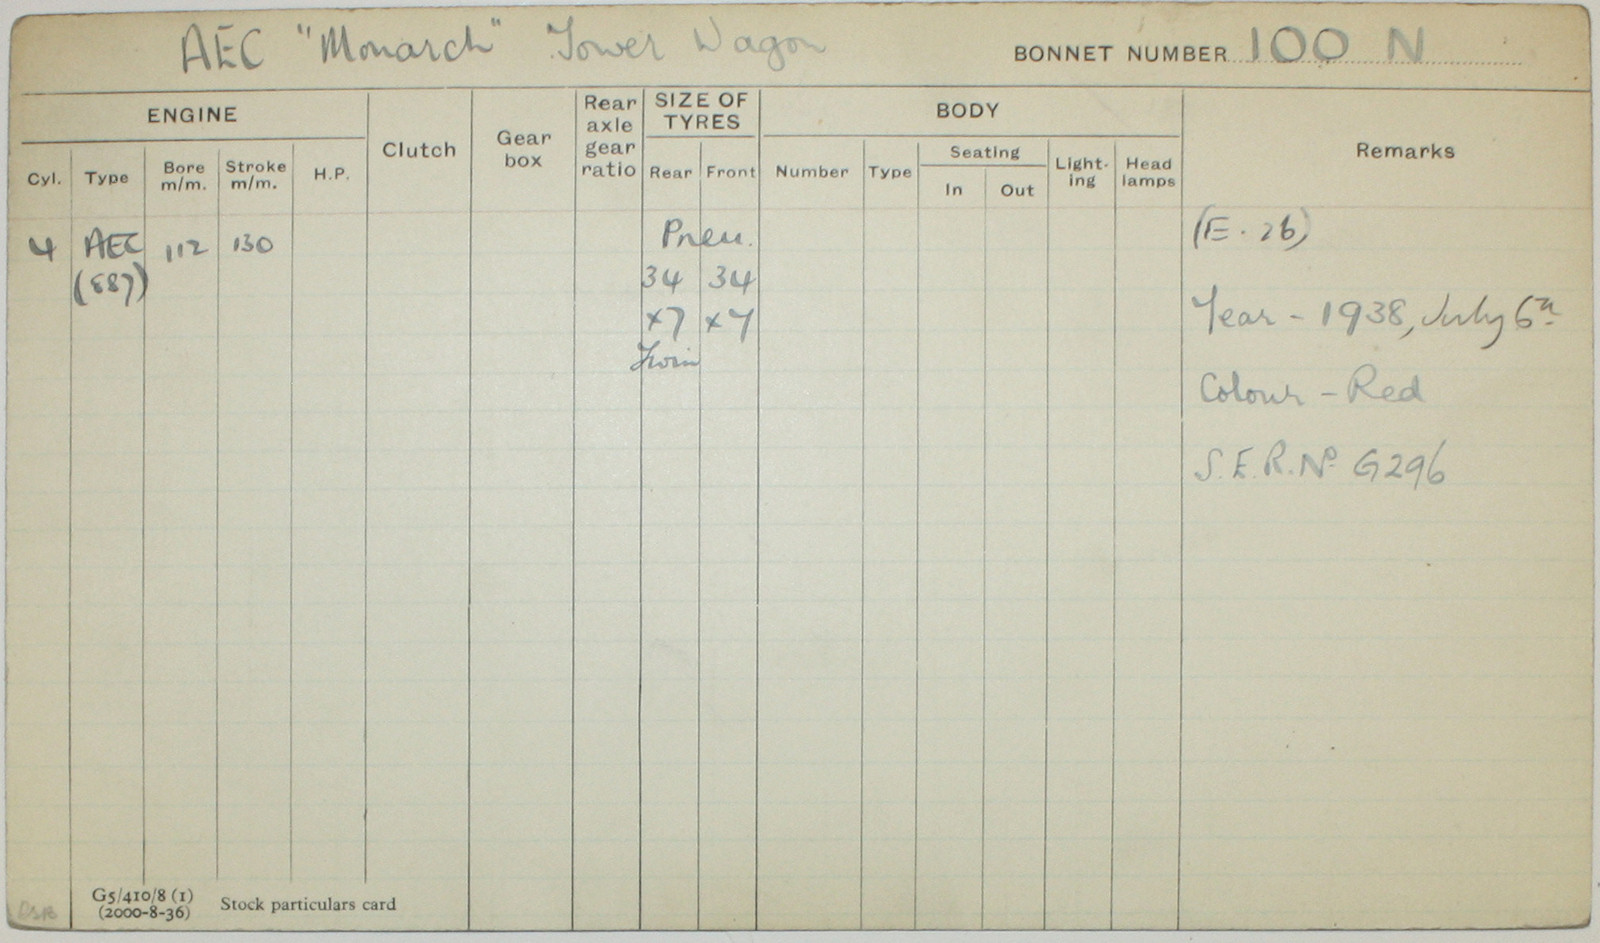 AEC "Monarch" Tower Wagon
BONNET NUMBER 100 N
ENGINE
Clutch
Gear box
Rear axle gear ratio
SIZE OF TYRES
BODY
Remarks
Cyl. Type Bore m/m. Stroke m/m. H.P.
Rear Front
Number Type Seating In Out Light-ing Head lamps
4 AEC 112 130 Pneu. (E. 26)
(587) 34 34
×7 ×7 Year - 1938, July 6th
Twin
Colour - Red
S.E.R. No G296
G5/410/8 (1)
(2000-8-36) Stock particulars card